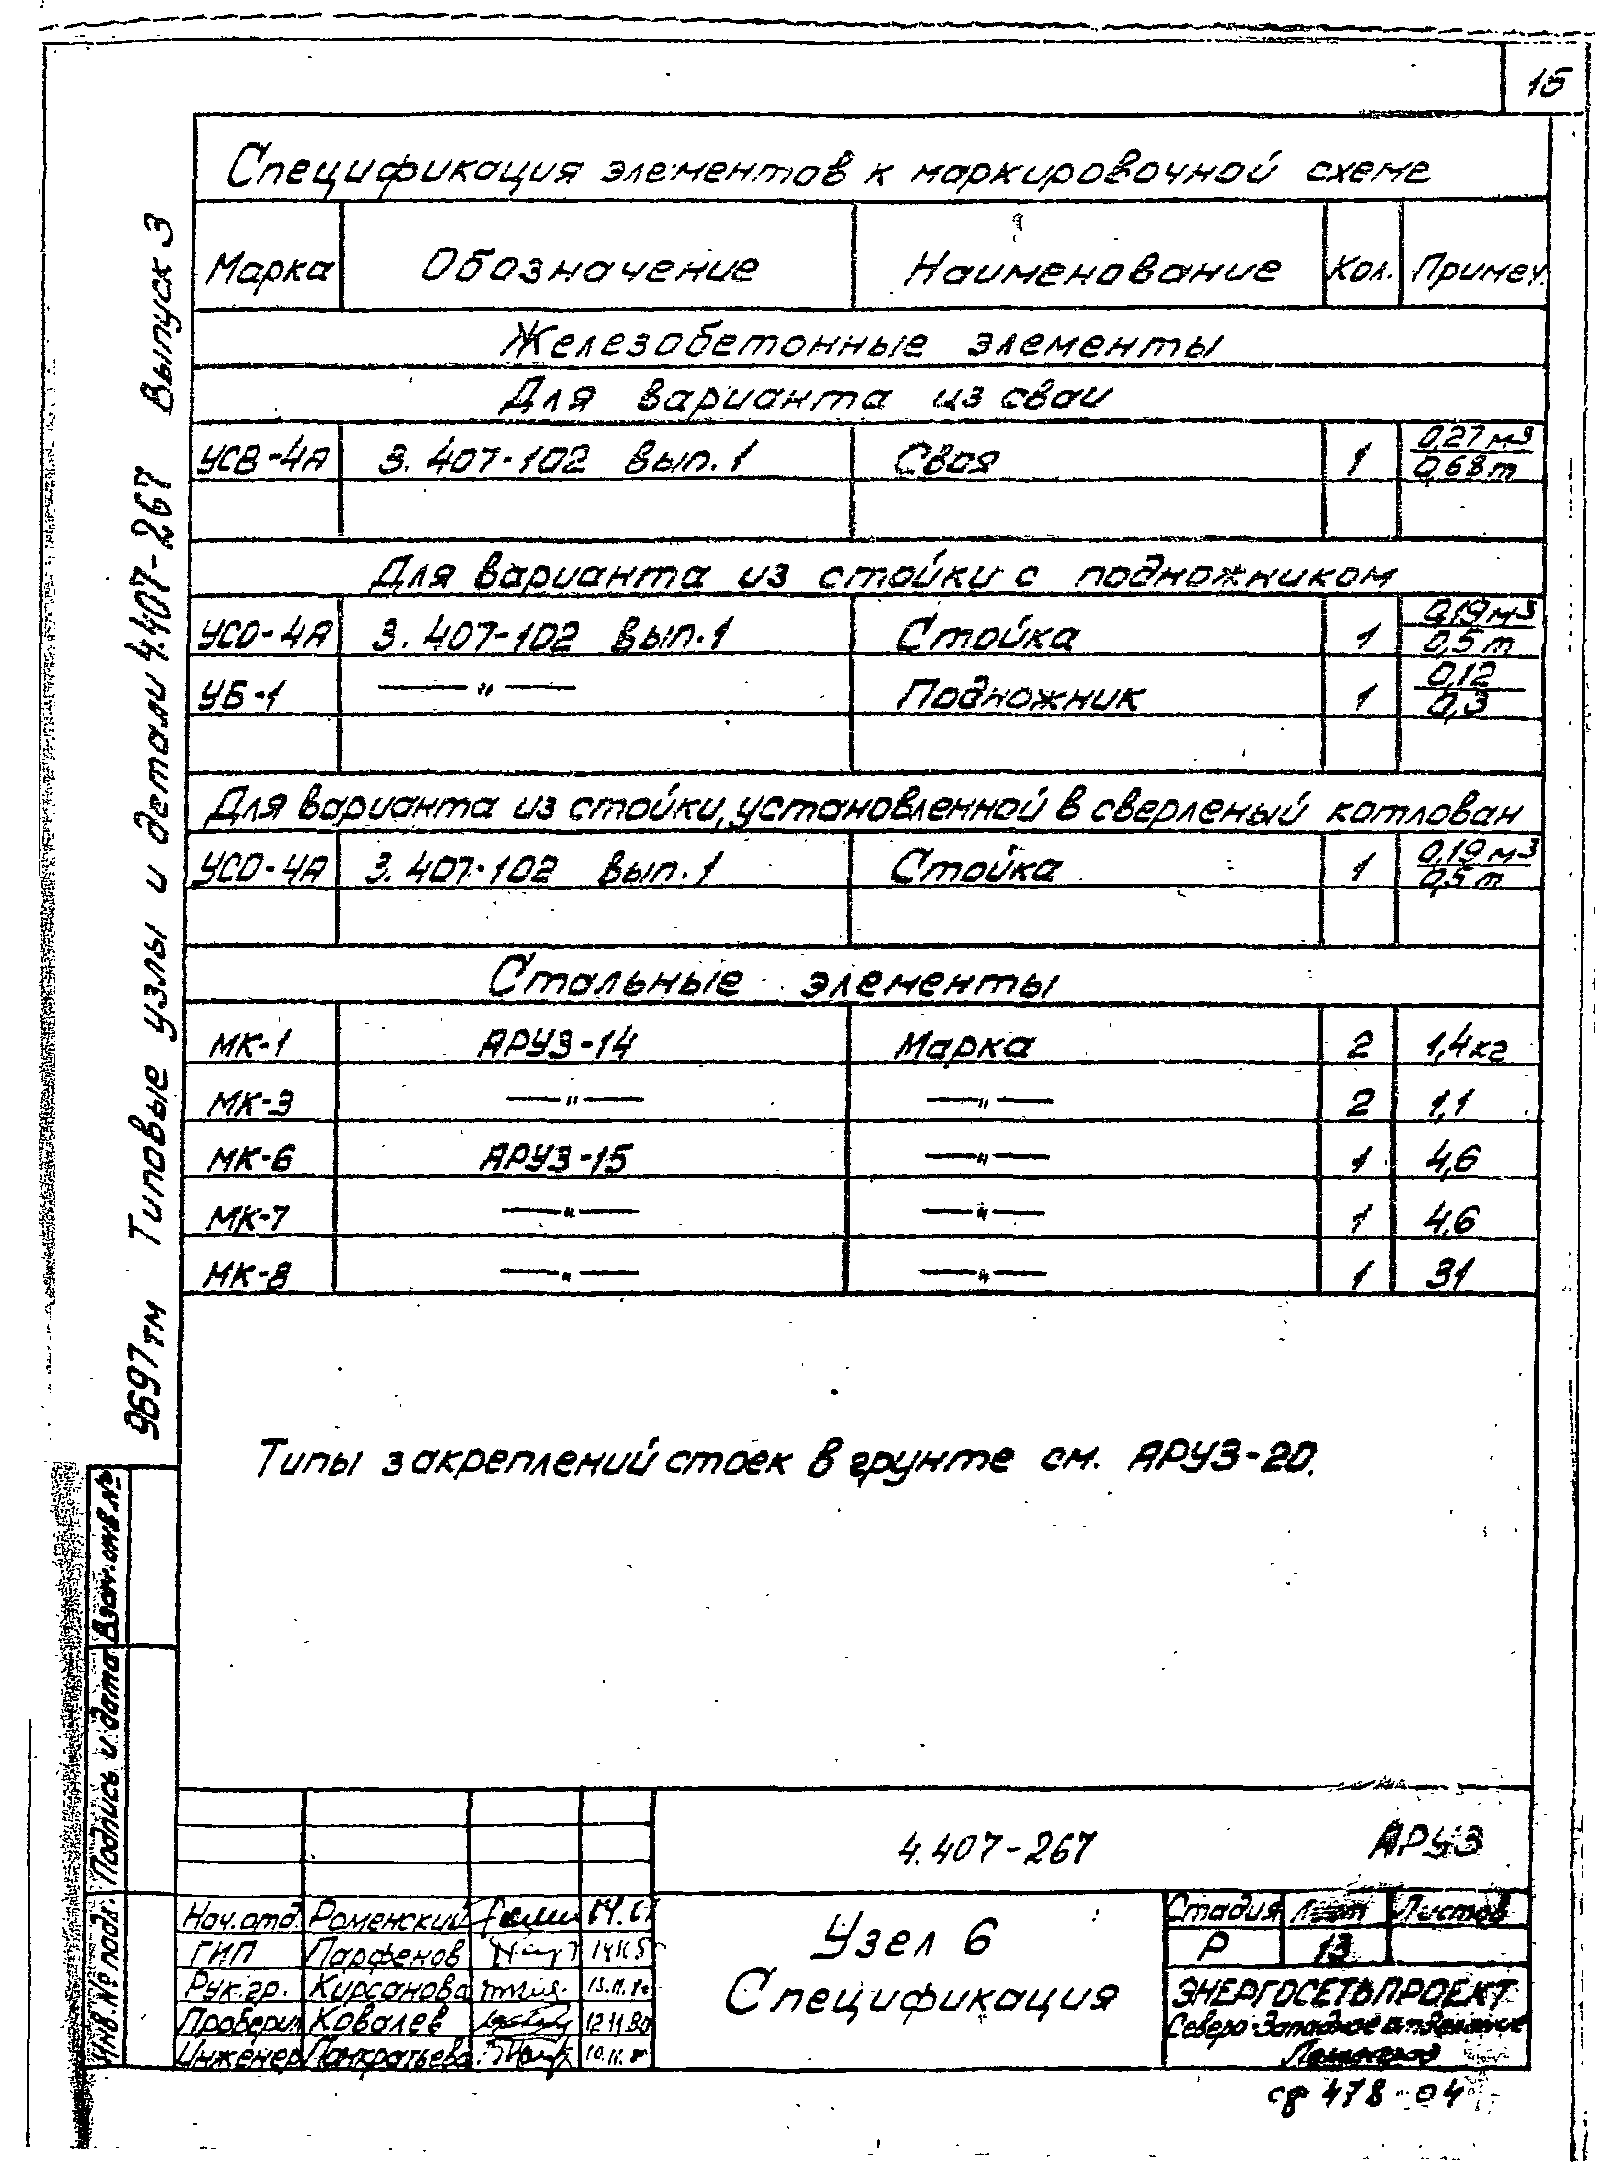 15
Спецификация элементов к маркировочной схеме
Марка Обозначение Наименование Кол. Примеч.
Железобетонные элементы
Для варианта из сваи
УСВ-4А 3.407-102 вып.1 Свая 1 0,27 м3 / 0,68 т
Для варианта из стойки с подножником
УСО-4А 3.407-102 вып.1 Стойка 1 0,19 м3 / 0,5 т
УБ-1 —"— Подножник 1 0,12 / 0,3
Для варианта из стойки, установленной в сверленый котлован
УСО-4А 3.407-102 вып.1 Стойка 1 0,19 м3 / 0,5 т
Стальные элементы
МК-1 АРУ3-14 Марка 2 1,4кг
МК-3 —"— —"— 2 1,1
МК-6 АРУ3-15 —"— 1 4,6
МК-7 —"— —"— 1 4,6
МК-8 —"— —"— 1 31
Типы закреплений стоек в грунте см. АРУ3-20.
9697тм Типовые узлы и детали 4.407-267 Выпуск 3
Взам. инв. №
Подпись и дата
Инв. № подл.
4.407-267 АРУ3
Нач.отд. Роменский
ГИП Парфенов
Рук.гр. Кирсанова
Проверил Ковалев 12.11.80
Инженер Панкратьева
Узел 6
Спецификация
Стадия Лист Листов
Р 13
ЭНЕРГОСЕТЬПРОЕКТ
Северо-Западное отделение
Ленинград
сф 478-04